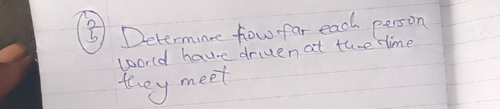 3/5 Determine how far each person
world have driven at the time
they meet